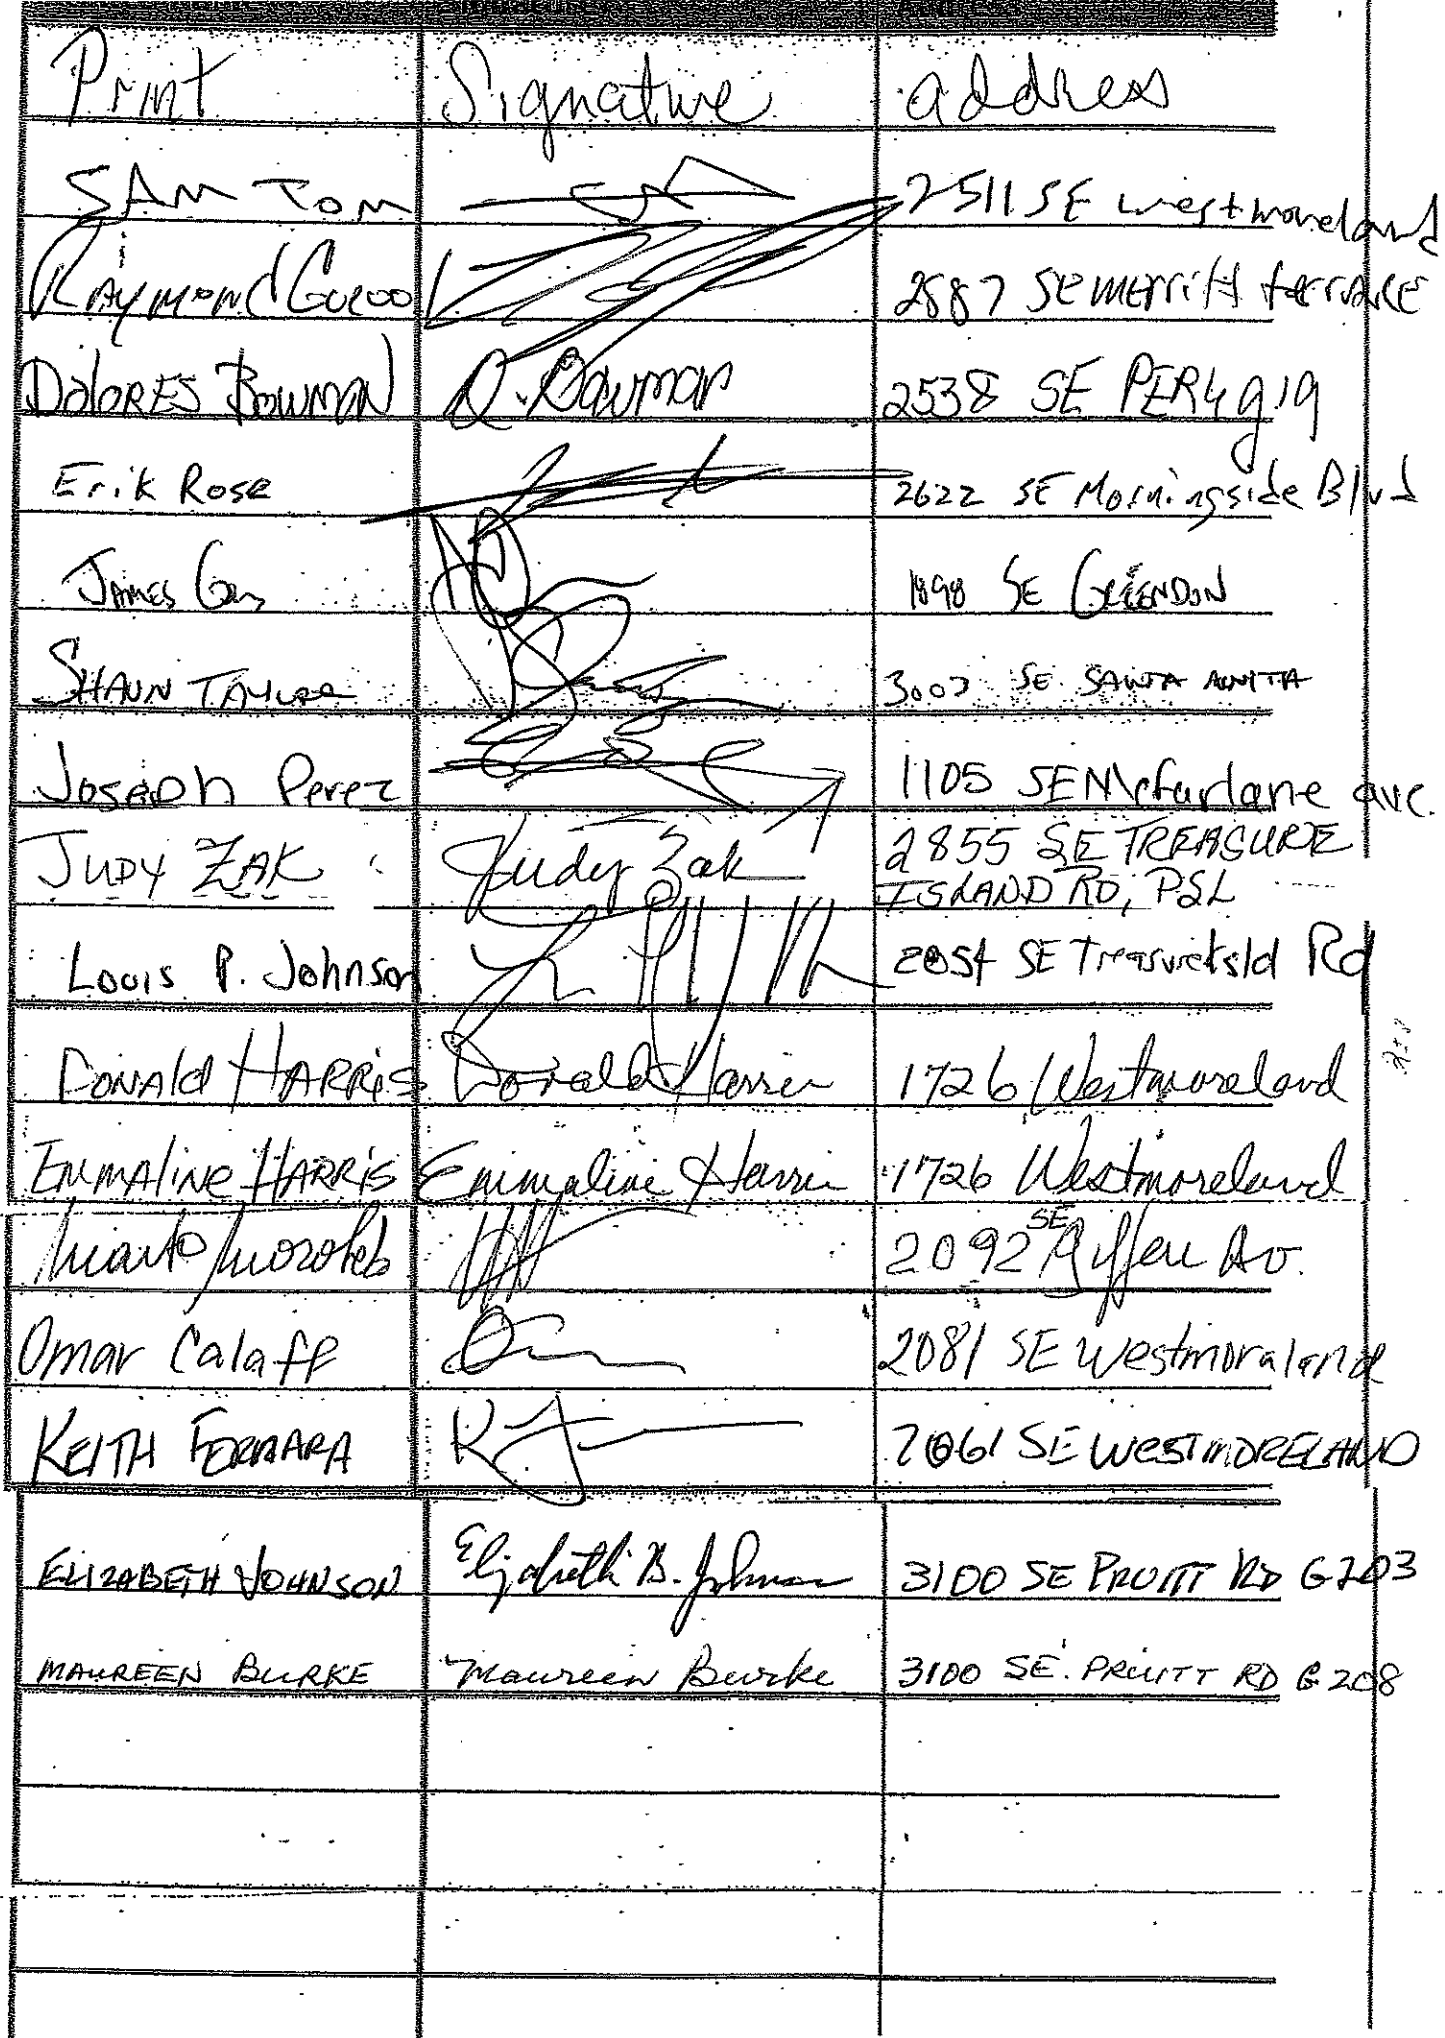 Print Signature address
SAM TOM 2511 SE westmoreland
Raymond 2887 SE merritt terrace
DOLORES BOWMAN D. Bowman 2538 SE
Erik Rose 2622 SE Morningside Blvd
JAMES 1898 SE
SHAUN TAYLOR 3002 SE. SANTA ANITA
Joseph Perez 1105 SE Mcfarlane ave.
JUDY ZAK Judy Zak 2855 SE TREASURE
ISLAND RD, PSL
Louis P. Johnson SE Rd
DONALD HARRIS Donald Harris 1726 Westmoreland
EMMALINE HARRIS Emmaline Harris 1726 Westmoreland
2092 SE Av.
Omar Calaff 2081 SE Westmoraland
KEITH FERRARA 2061 SE WESTMORELAND
ELIZABETH JOHNSON Elizabeth B. Johnson 3100 SE PRUITT RD G203
MAUREEN BURKE Maureen Burke 3100 SE. PRUITT RD G208